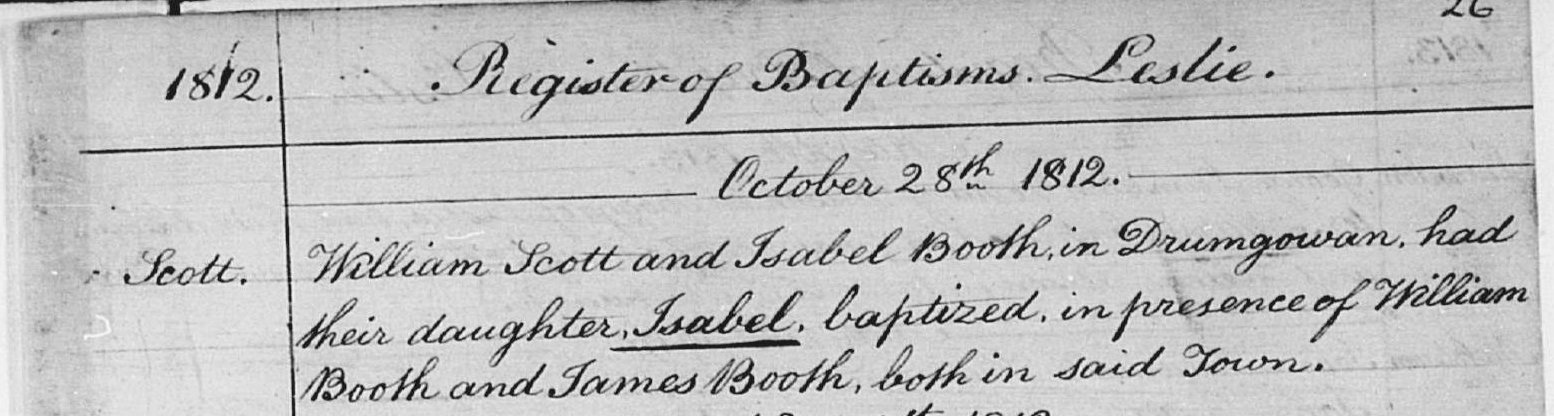 26
1812. Register of Baptisms. Leslie.
October 28th 1812.
Scott. William Scott and Isabel Booth, in Drumgowan, had
their daughter, Isabel, baptized, in presence of William
Booth and James Booth, both in said Town.